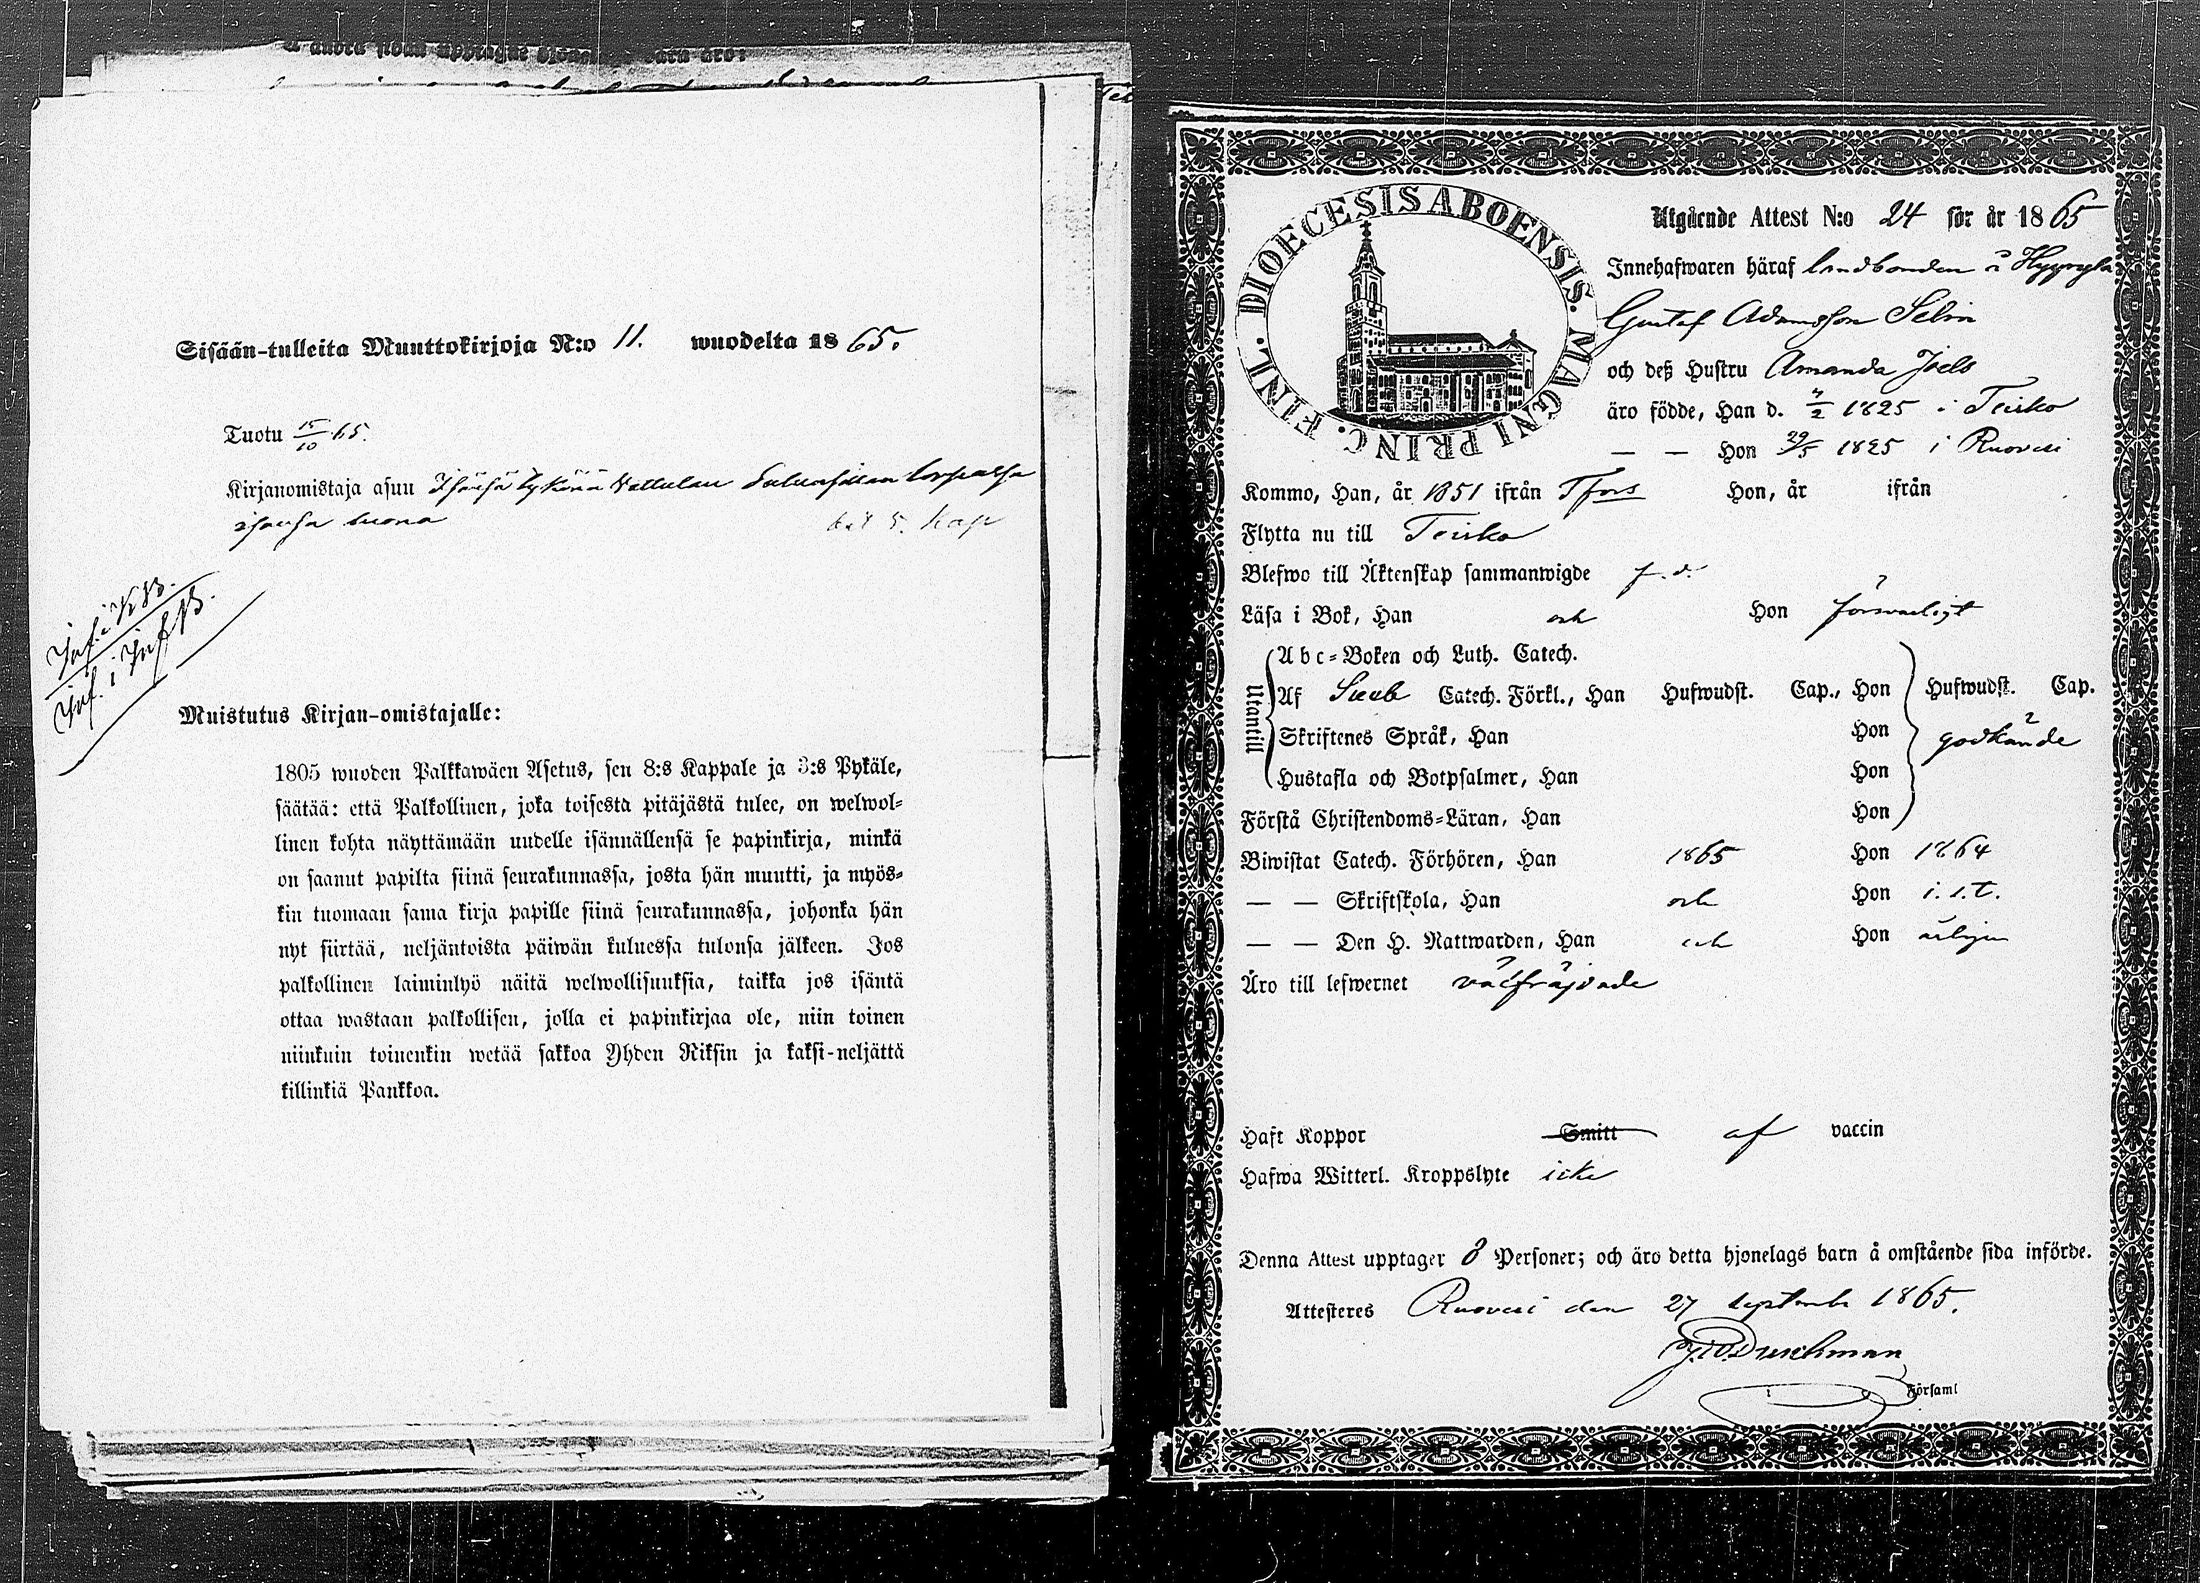 å andra sidan upptagne
Sisään-tulleita Muuttokirjoja N:o 11. wuodelta 1865.
Tuotu 15/10 65.
Kirjanomistaja asuu
Inf. i KB.
Inf. i Infl B.
Muistutus Kirjan-omistajalle:
1805 wuoden Palkkawäen Asetus, sen 8:s Kappale ja 3:s Pykäle,
säätää: että Palkollinen, joka toisesta pitäjästä tulee, on welwol-
linen kohta näyttämään uudelle isännällensä se papinkirja, minkä
on saanut papilta siinä seurakunnassa, josta hän muutti, ja myös-
kin tuomaan sama kirja papille siinä seurakunnassa, johonka hän
nyt siirtää, neljäntoista päiwän kuluessa tulonsa jälkeen. Jos
palkollinen laiminlyö näitä welwollisuuksia, taikka jos isäntä
ottaa wastaan palkollisen, jolla ei papinkirjaa ole, niin toinen
niinkuin toinenkin wetää sakkoa Yhden Riksin ja kaksi-neljättä
killinkiä Pankkoa.
DIOECESIS ABOENSIS. MAGNI PRINC. FINL.
Utgående Attest N:o 24 för år 1865
Innehafwaren häraf landbonden å Hyyrylä
Gustaf Adamsson Selin
och deß Hustru Amanda Joels
äro födde, Han d. 4/2 1825 i Teisko
— — Hon 29/5 1825 i Ruovesi
Kommo, Han, år 1851 ifrån Tfors Hon, år ifrån
Flytta nu till Teisko
Blefwo till Äktenskap sammanwigde f. d.
Läsa i Bok, Han och Hon försvarligt
Utantill
Abc-Boken och Luth. Catech.
Af Sweb Catech. Förkl., Han Hufwudst. Cap., Hon Hufwudst. Cap.
Skriftenes Språk, Han Hon godkände
Hustafla och Botpsalmer, Han Hon
Förstå Christendoms-Läran, Han Hon
Biwistat Catech. Förhören, Han 1865 Hon 1864
— — Skriftskola, Han och Hon i. s. t.
— — Den H. Nattwarden, Han och Hon årligen
Äro till lefwernet välfräjdade
Haft Koppor Smitt af vaccin
Hafwa Witterl. Kroppslyte icke
Denna Attest upptager 8 Personer; och äro detta hjonelags barn å omstående sida införde.
Attesteres Ruovesi den 27 September 1865.
Durchman
Församl